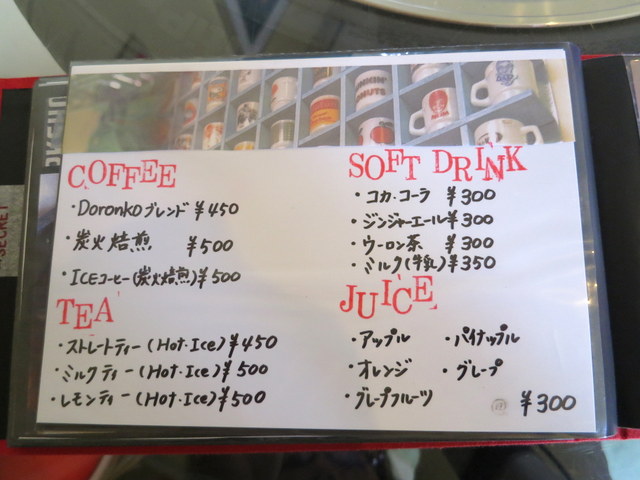 COFFEE
・Doronkoブレンド ¥450
・炭火焙煎 ¥500
・ICEコーヒー(炭火焙煎)¥500
TEA
・ストレートティー(Hot・Ice)¥450
・ミルクティー(Hot・Ice)¥500
・レモンティー(Hot・Ice)¥500
SOFT DRINK
・コカ・コーラ ¥300
・ジンジャーエール¥300
・ウーロン茶 ¥300
・ミルク(牛乳)¥350
JUICE
・アップル ・パイナップル
・オレンジ ・グレープ
・グレープフルーツ
¥300
SECRET